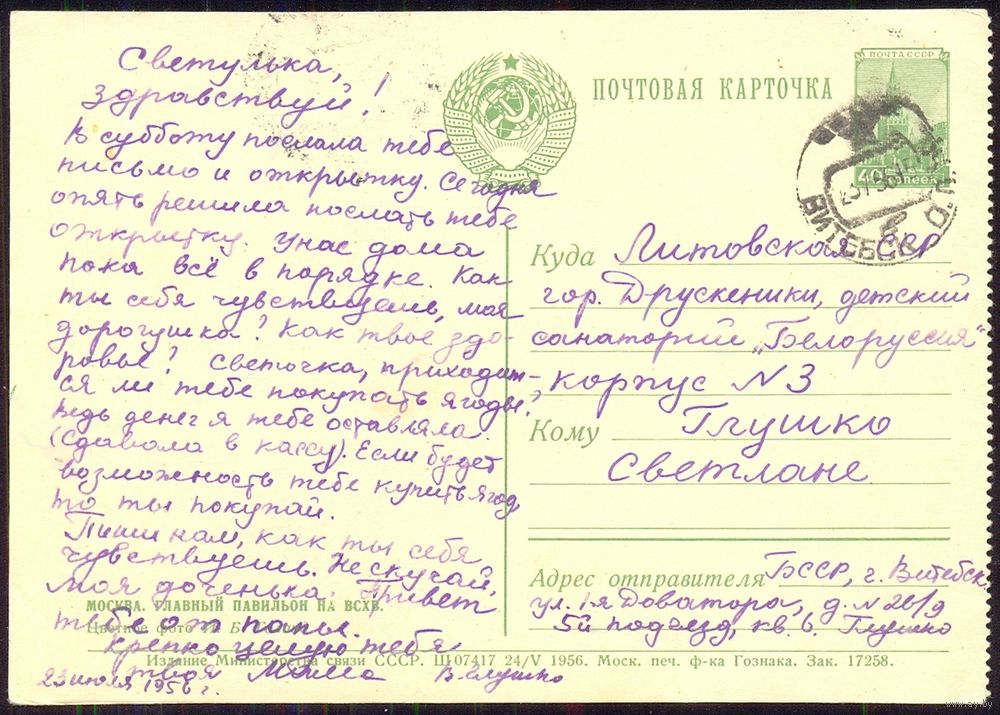 Светулька,
здравствуй!
В субботу послала тебе
письмо и открытку. Сегодня
опять решила послать тебе
открытку. У нас дома
пока всё в порядке. Как
ты себя чувствуешь, моя
дорогушка? Как твое здо-
ровье? Светочка, приходит-
ся ли тебе покупать ягоды?
Ведь денег я тебе оставляла.
(сдавала в кассу). Если будет
возможность тебе купить ягод
то ты покупай.
Пиши нам, как ты себя
чувствуешь. Не скучай,
моя доченька. Привет
тебе от папы.
Крепко целую тебя
твоя мама В. Глушко
23 июля 1956 г.
МОСКВА. ГЛАВНЫЙ ПАВИЛЬОН НА ВСХВ.
Цветное фото
Издание Министерства связи СССР. Щ 07417 24/V 1956. Моск. печ. ф-ка Гознака. Зак. 17258.
ПОЧТОВАЯ КАРТОЧКА
ПОЧТА СССР
40 КОПЕЕК
ВИТЕБСК
Куда Литовская ССР
гор. Друскеники, детский
санаторий „Белоруссия“
корпус N 3
Кому Глушко
Светлане
Адрес отправителя БССР, г. Витебск
ул. 1-я Доватора, д. N 26/9
5й подъезд, кв. 6. Глушко